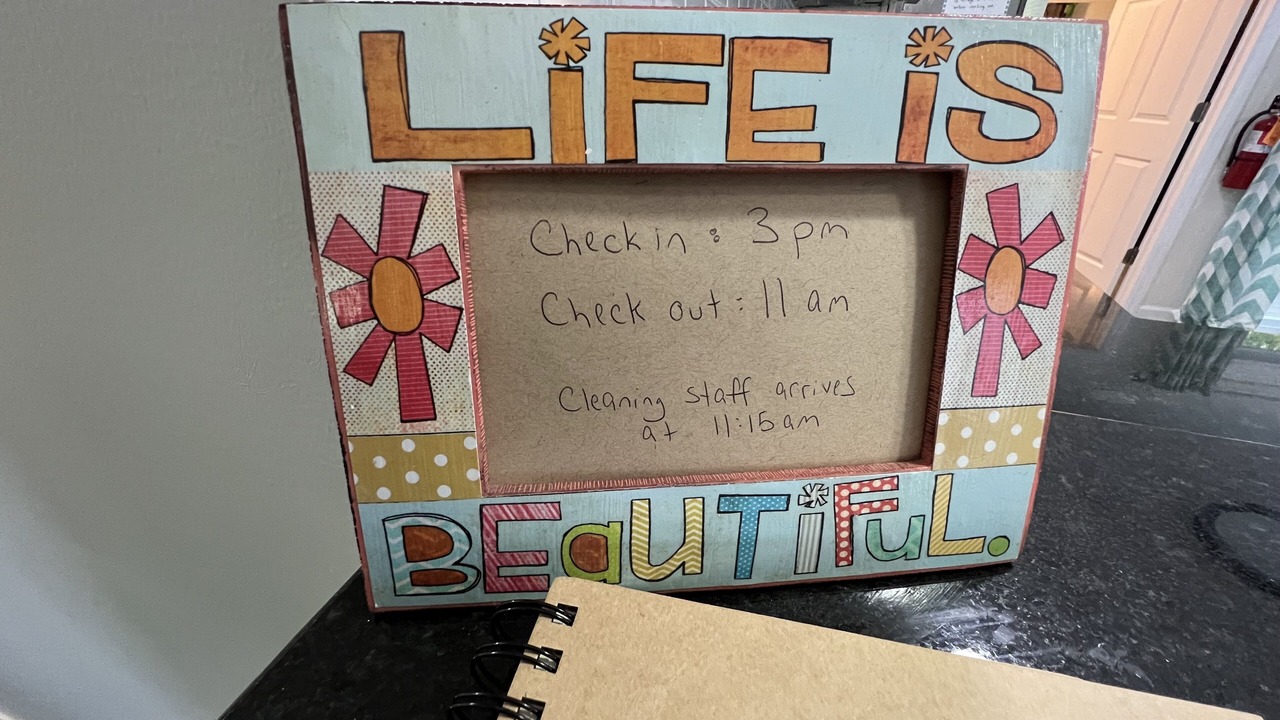 LiFE iS
Check in : 3 pm
Check out : 11 am
Cleaning staff arrives
at 11:15 am
BEaUTiFuL.